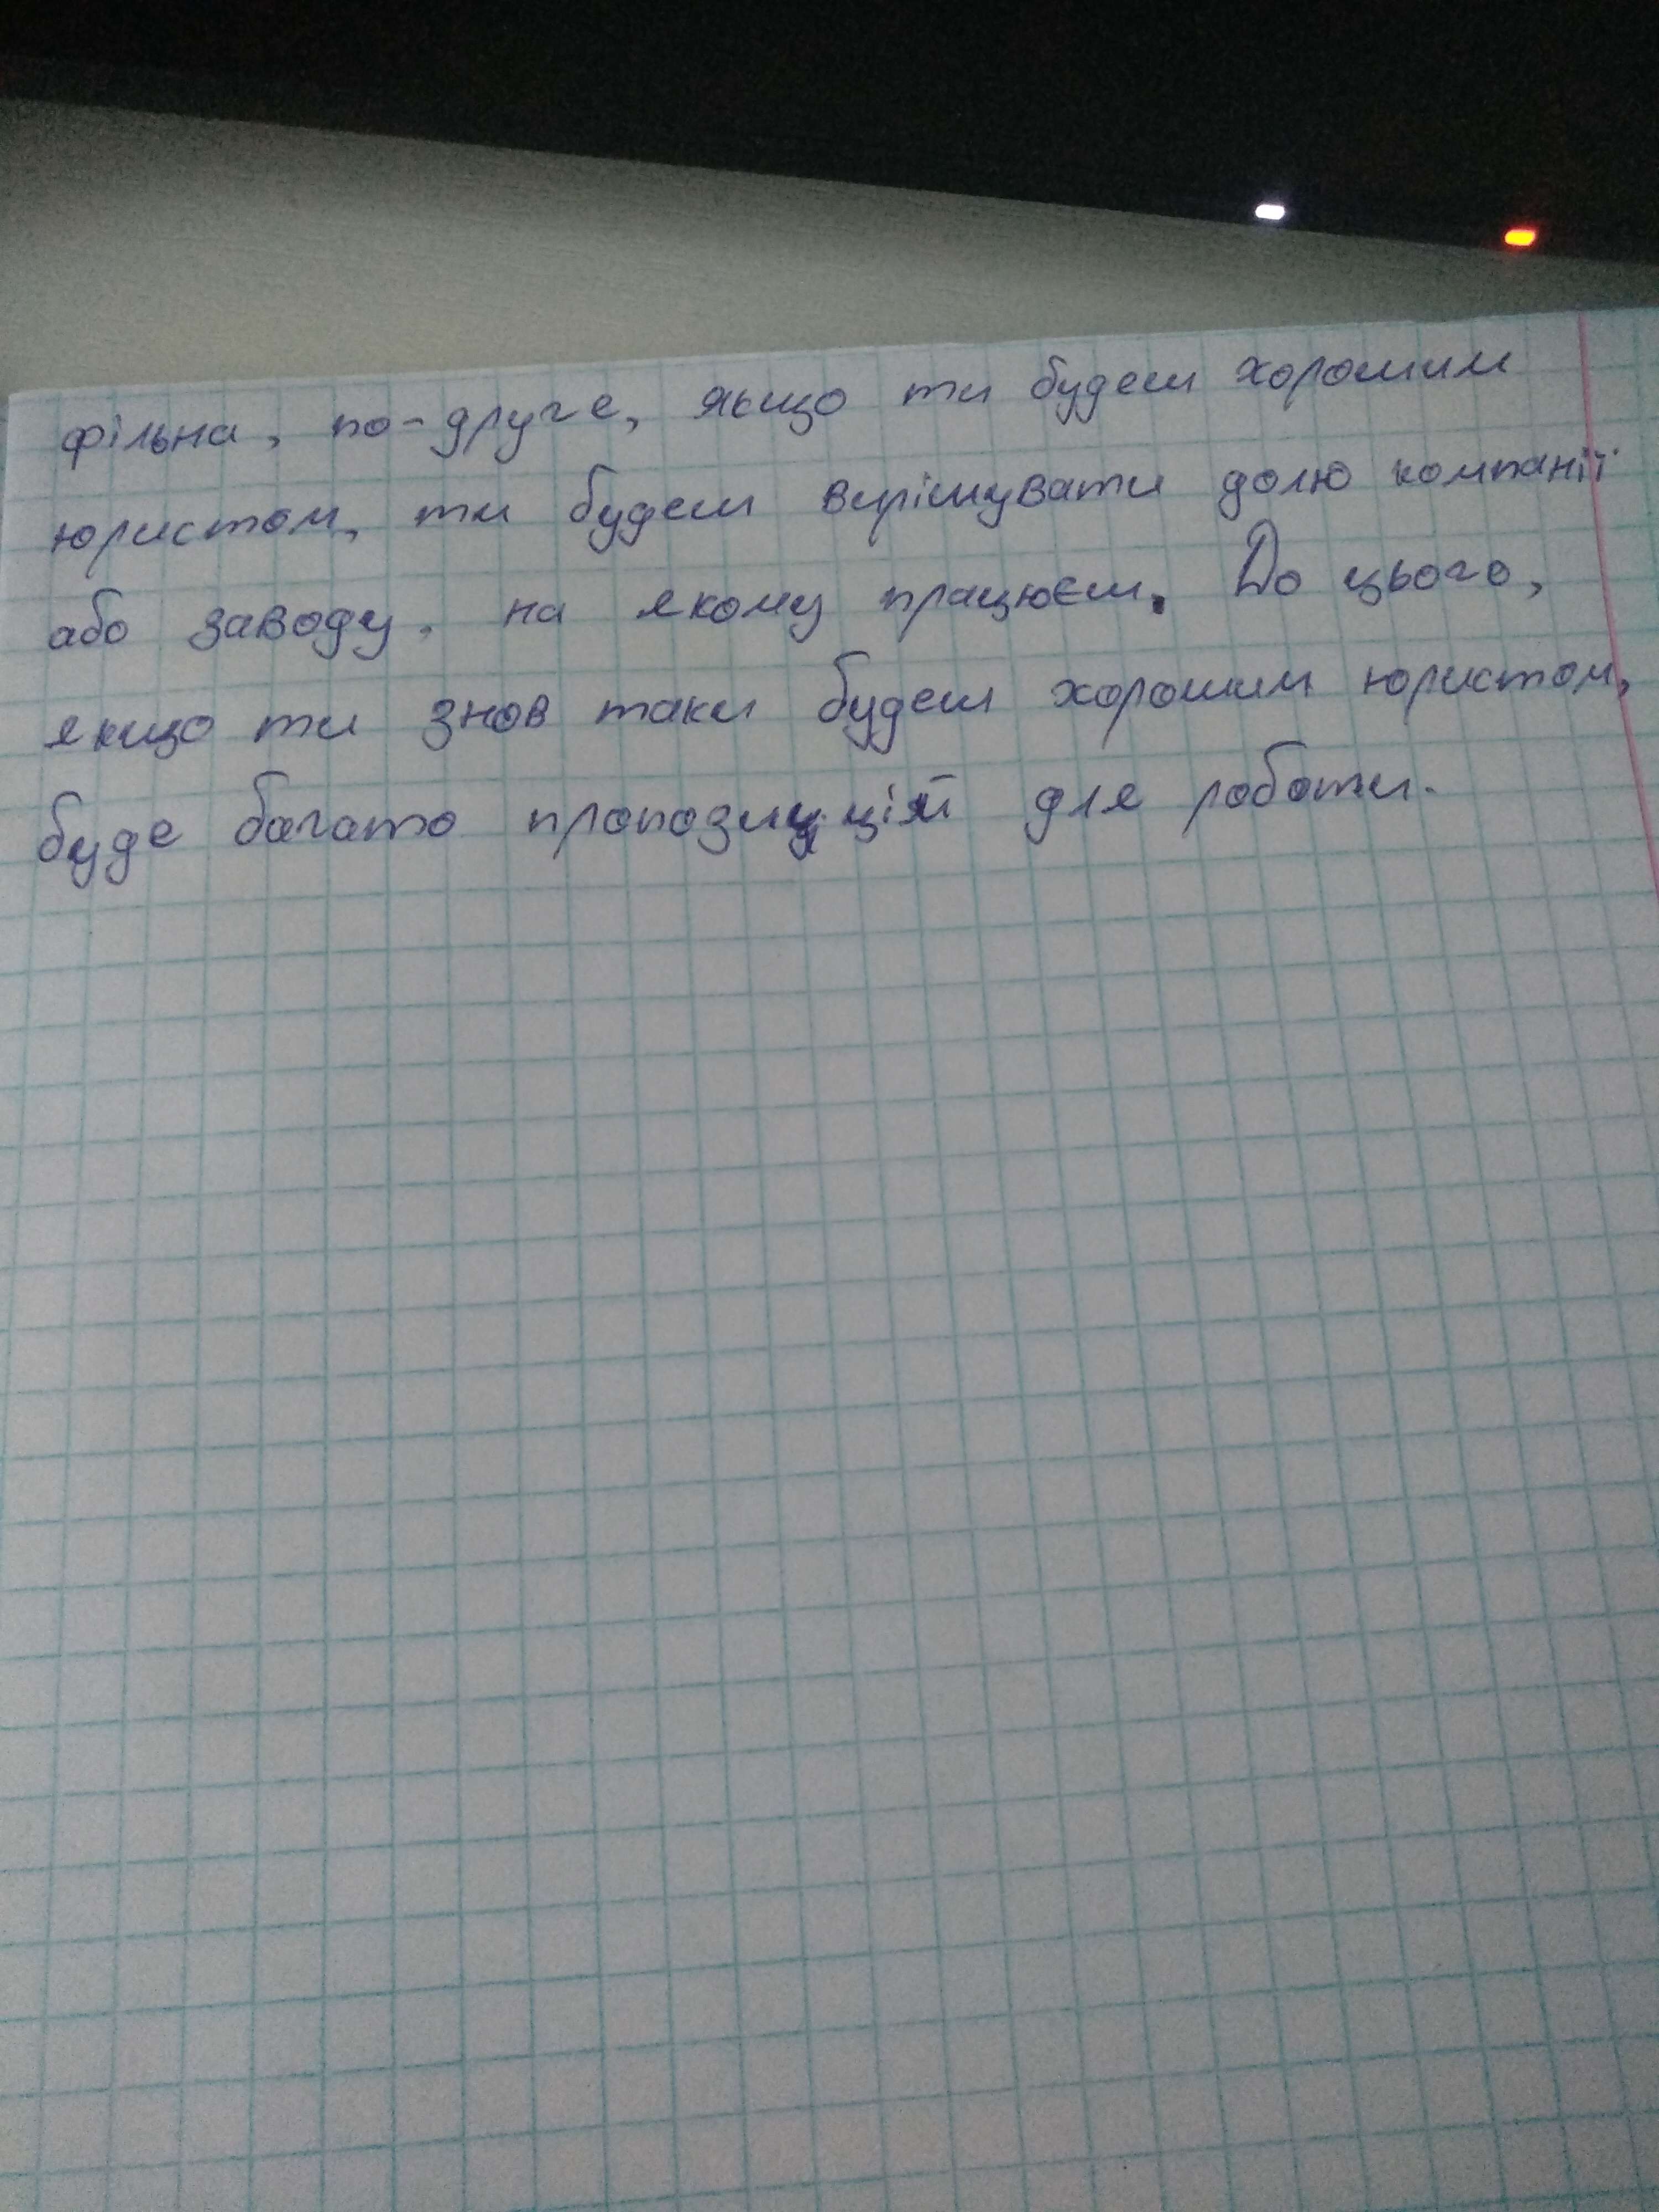 фільна, по-друге, якщо ти будеш хорошим
юристом, ти будеш вирішувати долю компанії
або заводу, на якому працюєш. До цього,
якщо ти знов таки будеш хорошим юристом,
буде багато пропозицій для роботи.